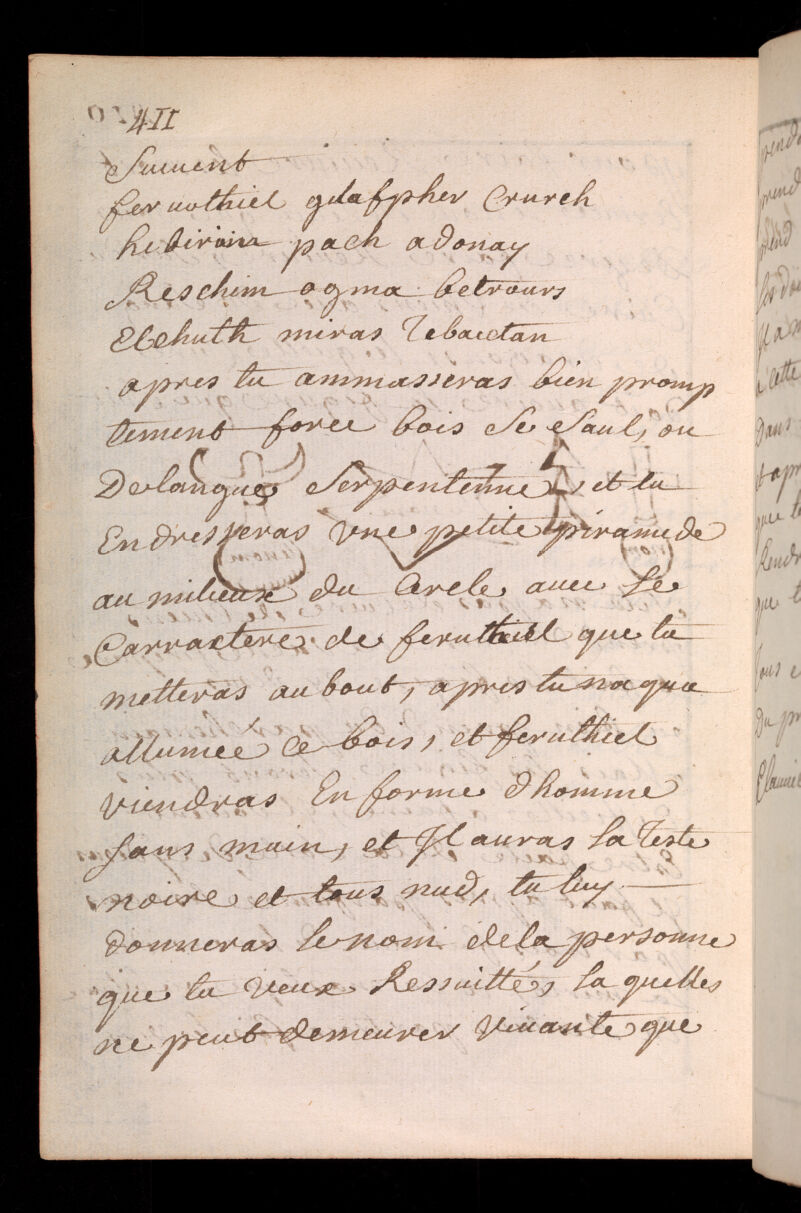 411
Suiuent
feruothiel gdafpher Crurch
hedirain pach adonay
Reschim ogma betrours
Elehuth miras Tebaictan
apres tu ammasseras bien promp
tement force bois de Saul, ou
De langue Serpentenne, et tu
En dresseras vne petite piramide
au milieux du Cercle auec le
Carractere de feruthiel que tu
metteras au bout, apres tu na qua
allumeé ce bois, et feruthiel
viendras En forme dhomme
sans main, et Jl auras la Teste
noire et tous nud, tu luy
donneras le nom de la personne
que tu veux Ressuitté, la quelles
ne peut demeurer viuante que